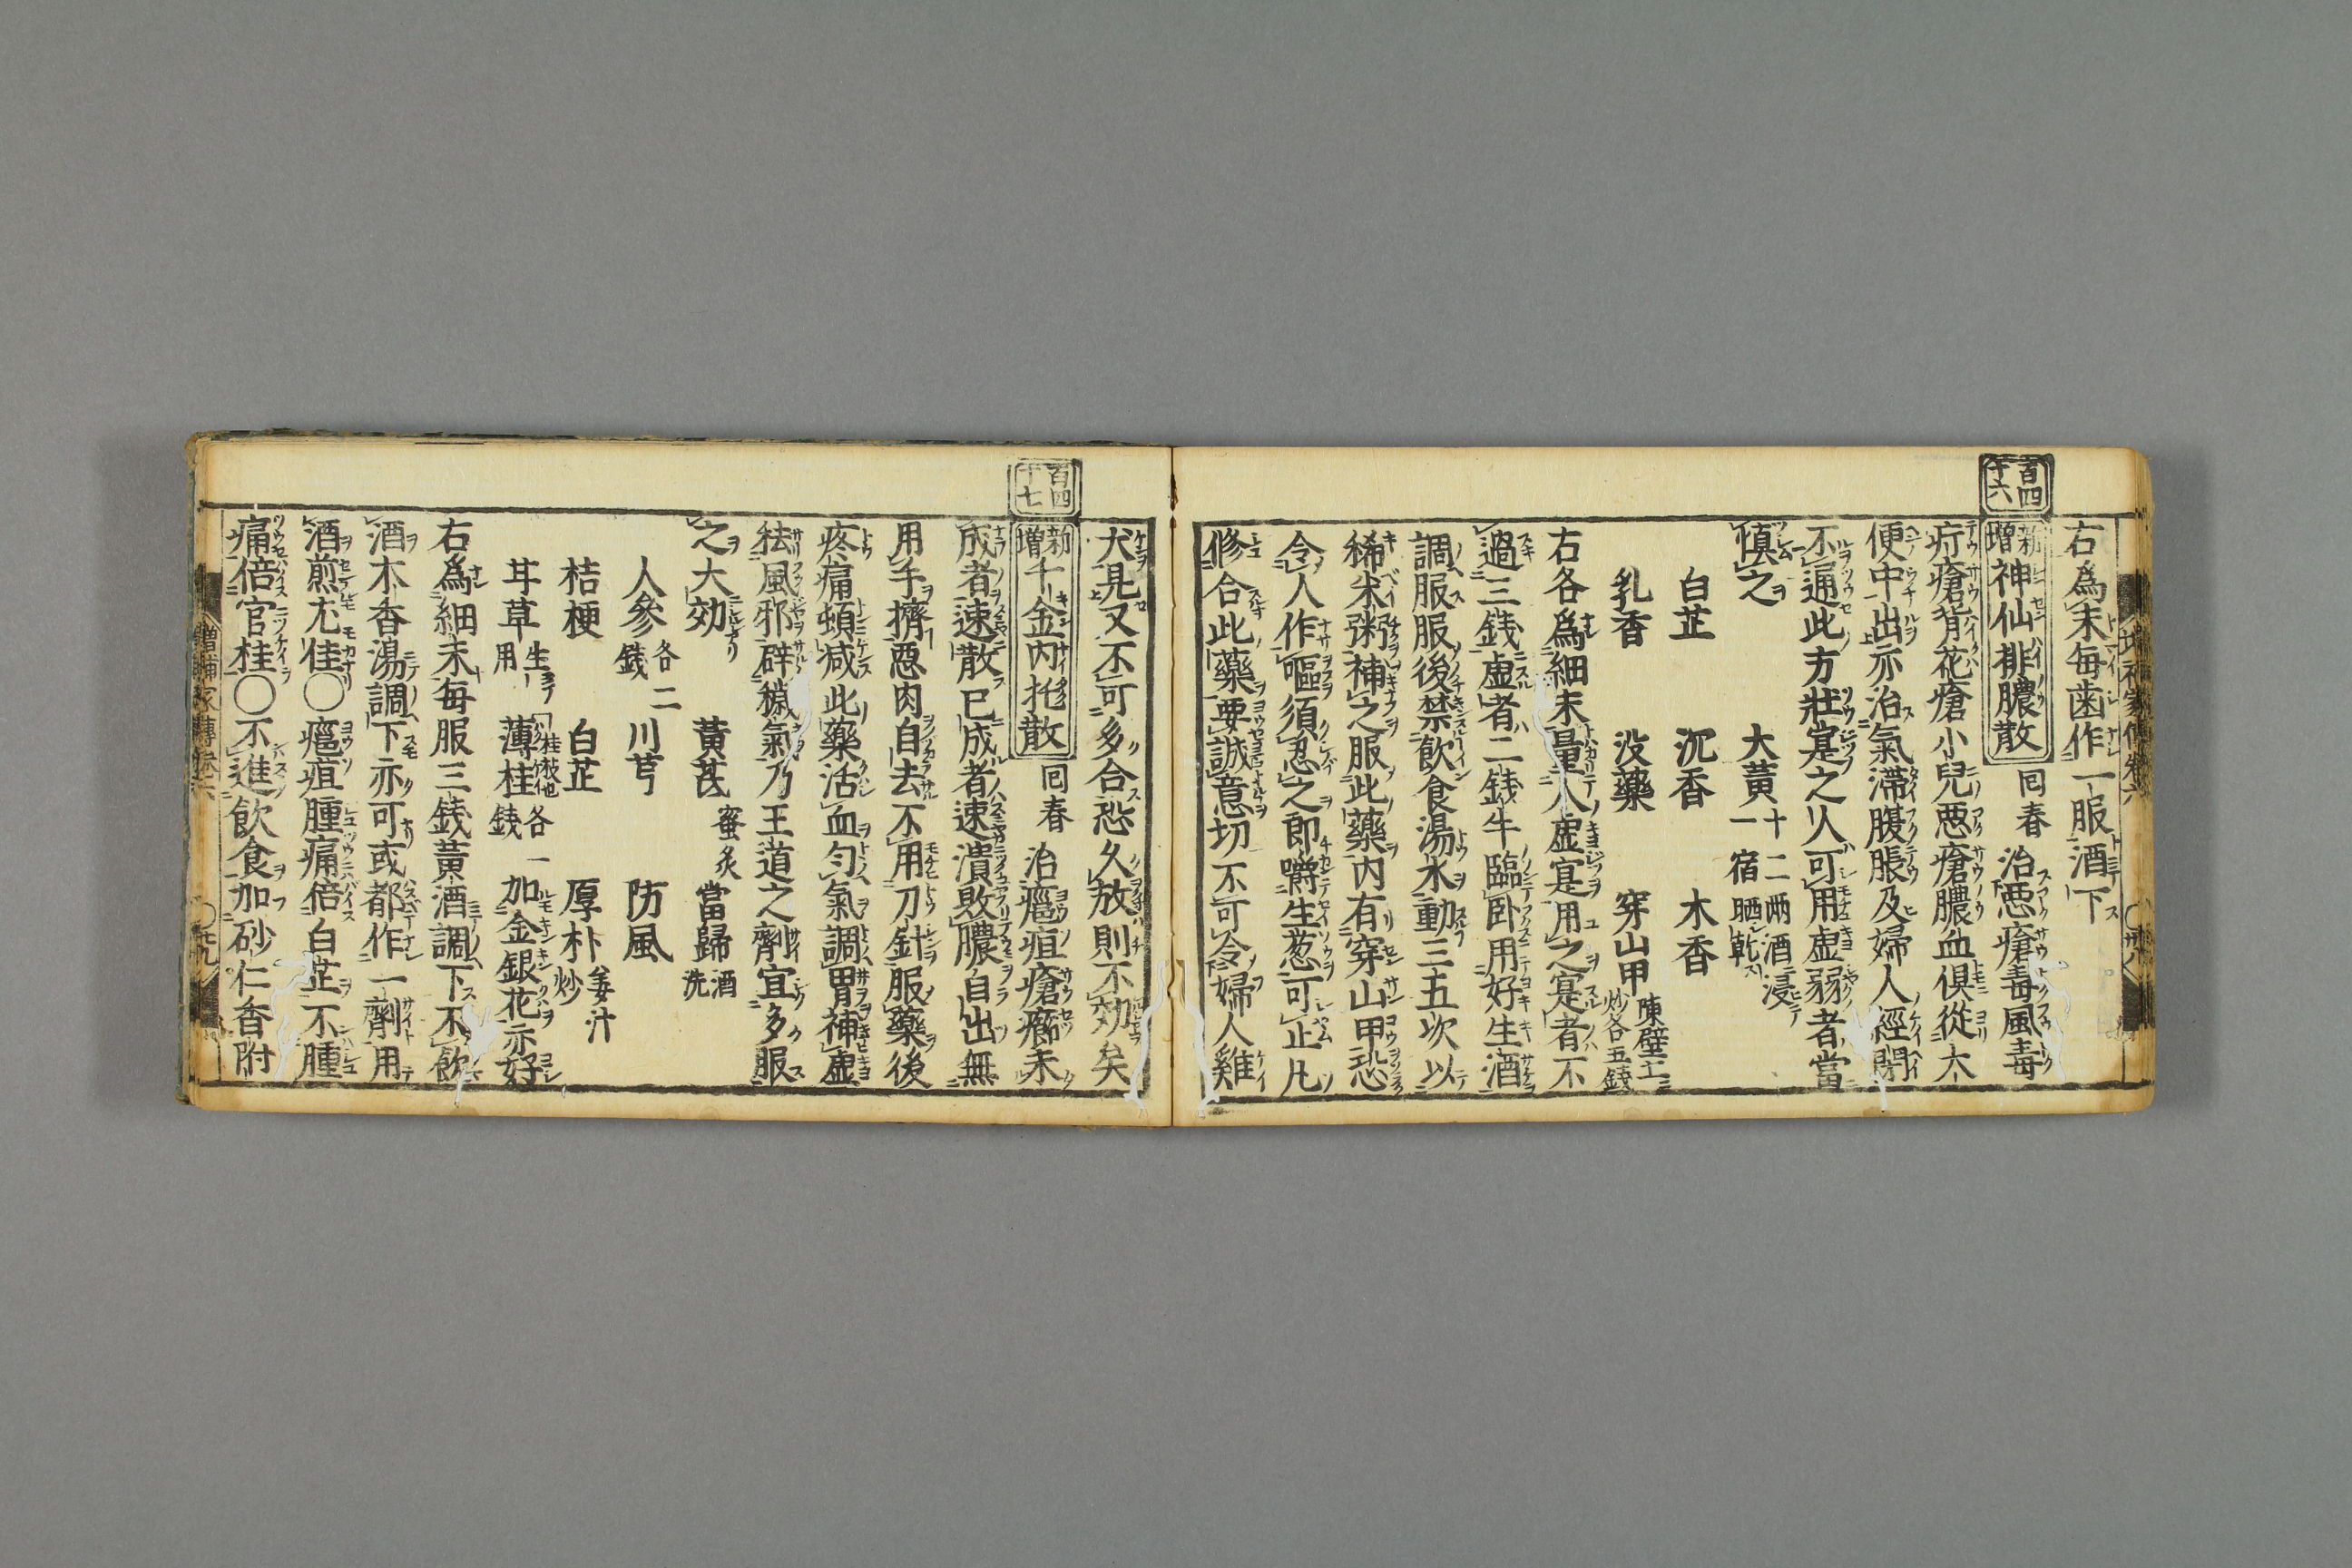 右爲末毎歯作一服酒下
百四十六
新増神仙排膿散 囘春 治悪瘡毒風毒
疔瘡背花瘡小兒悪瘡膿血倶從大
便中出亦治氣滞腹脹及婦人經閉
不通此方壯寔之人可用虚弱者當
慎之 大黄十二兩酒浸一宿晒乾
白芷 沉香 木香
乳香 没藥 穿山甲陳壁土炒各五銭
右各爲細末量人虚寔用之寔者不
過三銭虚者二銭半臨卧用好生酒
調服服後禁飲食湯水動三五次以
稀米粥補之服此藥内有穿山甲恐
令人作嘔須忍之即嚼生葱可止凡
修合此藥要誠意切不可令婦人雞
犬見又不可多合恐久放則不効矣
百四十七
新増千金内托散 囘春 治癰疽瘡癤未
成者速散已成者速潰敗膿自出無
用手擠悪肉自去不用刀針服藥後
疼痛頓减此藥活血匀氣調胃補虚
祛風邪辟穢氣乃王道之劑宜多服
之大効 黄芪蜜炙 當歸酒洗
人參各二銭 川芎 防風
桔梗 白芷 厚朴姜汁炒
甘草生用 薄桂各一銭 加金銀花亦好
右爲細末毎服三銭黄酒調下不飲
酒木香湯調下亦可或都作一劑用
酒煎尤佳〇癰疽腫痛倍白芷不腫
痛倍官桂〇不進飲食加砂仁香附
増補家傳巻六 〇廿九